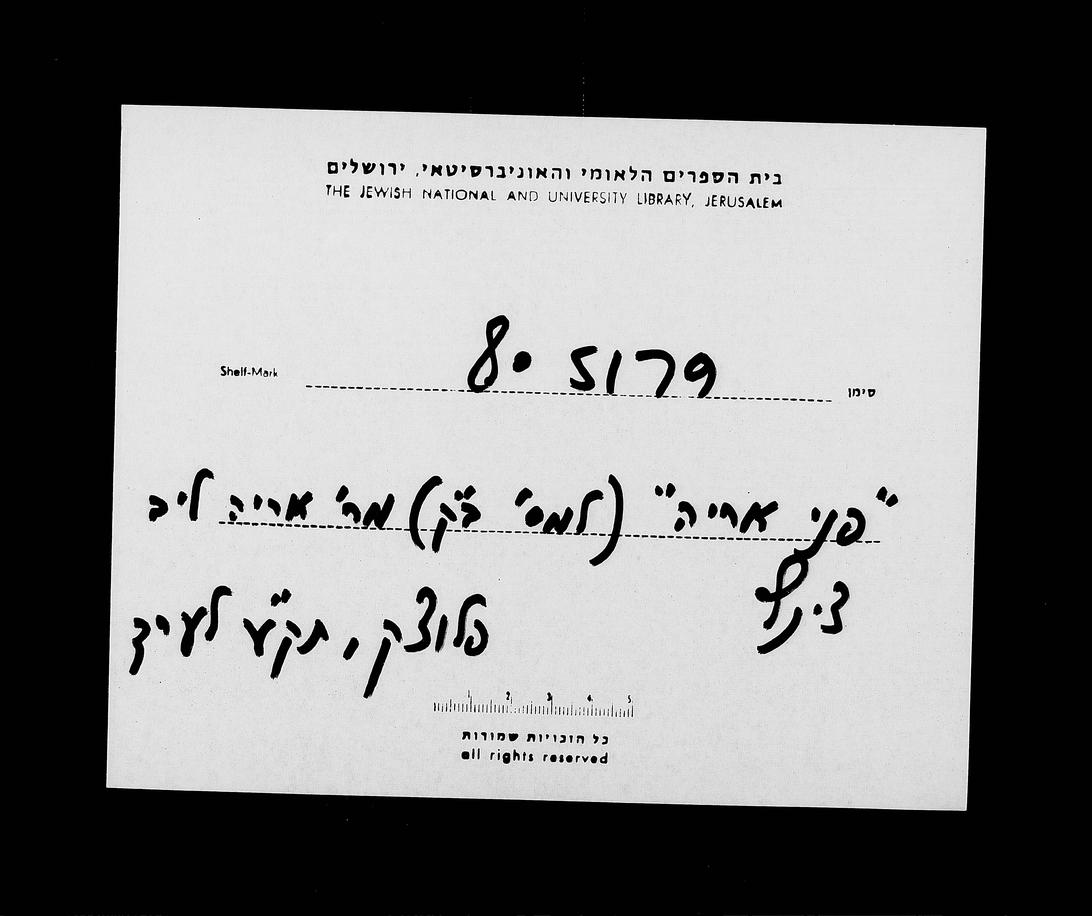 בית הספרים הלאומי והאוניברסיטאי, ירושלים
THE JEWISH NATIONAL AND UNIVERSITY LIBRARY, JERUSALEM
Shelf-Mark 8° 5179 סימן
"פני אריה" (למס' ב"ק) מר' אריה ליב
צינץ פלוצק, תק"ע לערך
1 2 3 4 5
כל הזכויות שמורות
all rights reserved